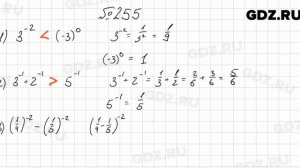 GDZ.RU
№255
1) 3⁻² < (-3)⁰ 3⁻² = 1/3² = 1/9
(-3)⁰ = 1
2) 3⁻¹ + 2⁻¹ > 5⁻¹ 3⁻¹ + 2⁻¹ = 1/3 + 1/2 = 2/6 + 3/6 = 5/6
5⁻¹ = 1/5
3) (1/4)⁻² - (1/5)⁻² (1/4 - 1/5)⁻²
GDZ.RU